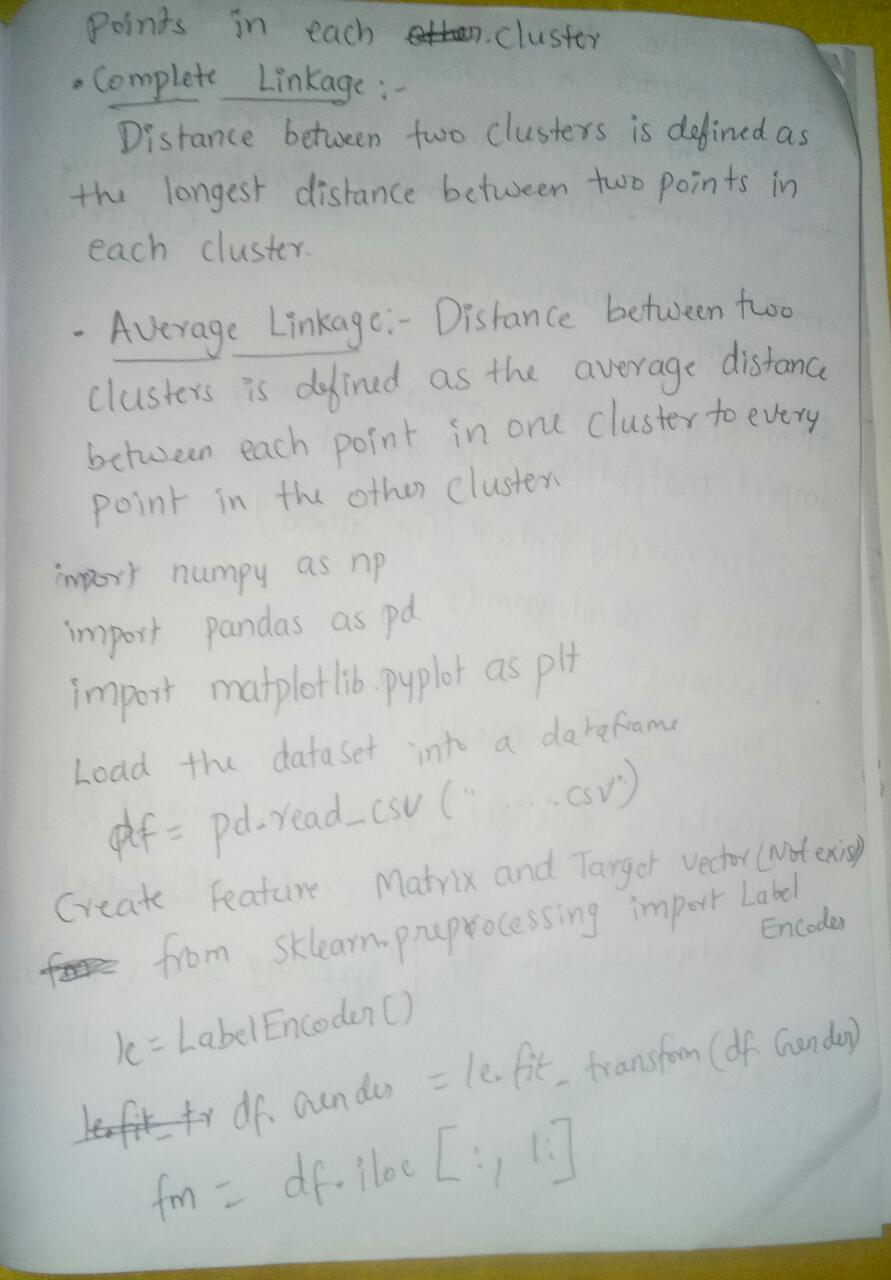 Points in each other. cluster
• Complete Linkage :-
Distance between two clusters is defined as
the longest distance between two points in
each cluster.
- Average Linkage:- Distance between two
clusters is defined as the average distance
between each point in one cluster to every
point in the other cluster.
import numpy as np
import pandas as pd
import matplotlib.pyplot as plt
Load the dataset into a dataframe
df = pd.read_csv (" ..... .csv")
Create Feature Matrix and Target vector (Not exist)
from sklearn.preprocessing import Label
Encoder
le = LabelEncoder()
le.fit_tr df. Gender = le.fit_transform (df. Gender)
fm = df.iloc [:, 1:]